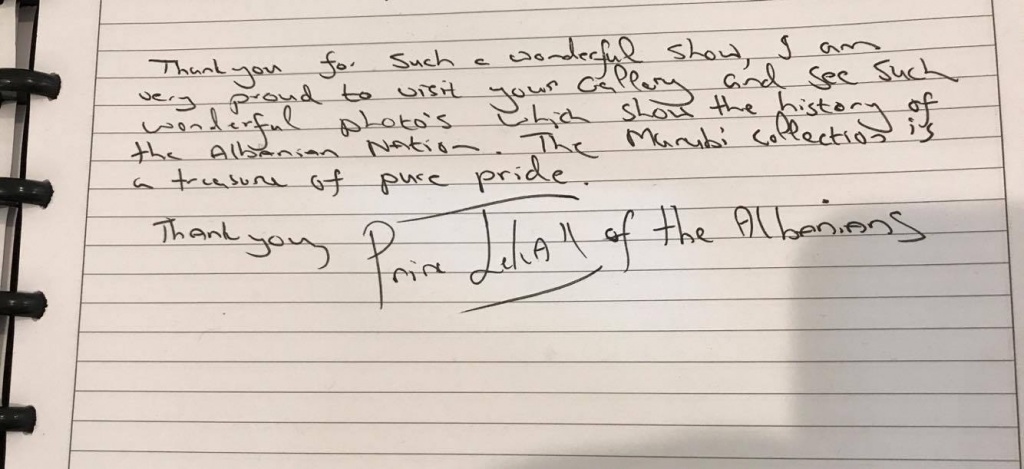 Thank you for such a wonderful show, I am
very proud to visit your Gallery and see such
wonderful photo's which show the history of
the Albanian Nation. The Marubi collection is
a treasure of pure pride.
Thank you Prince Leka II of the Albanians